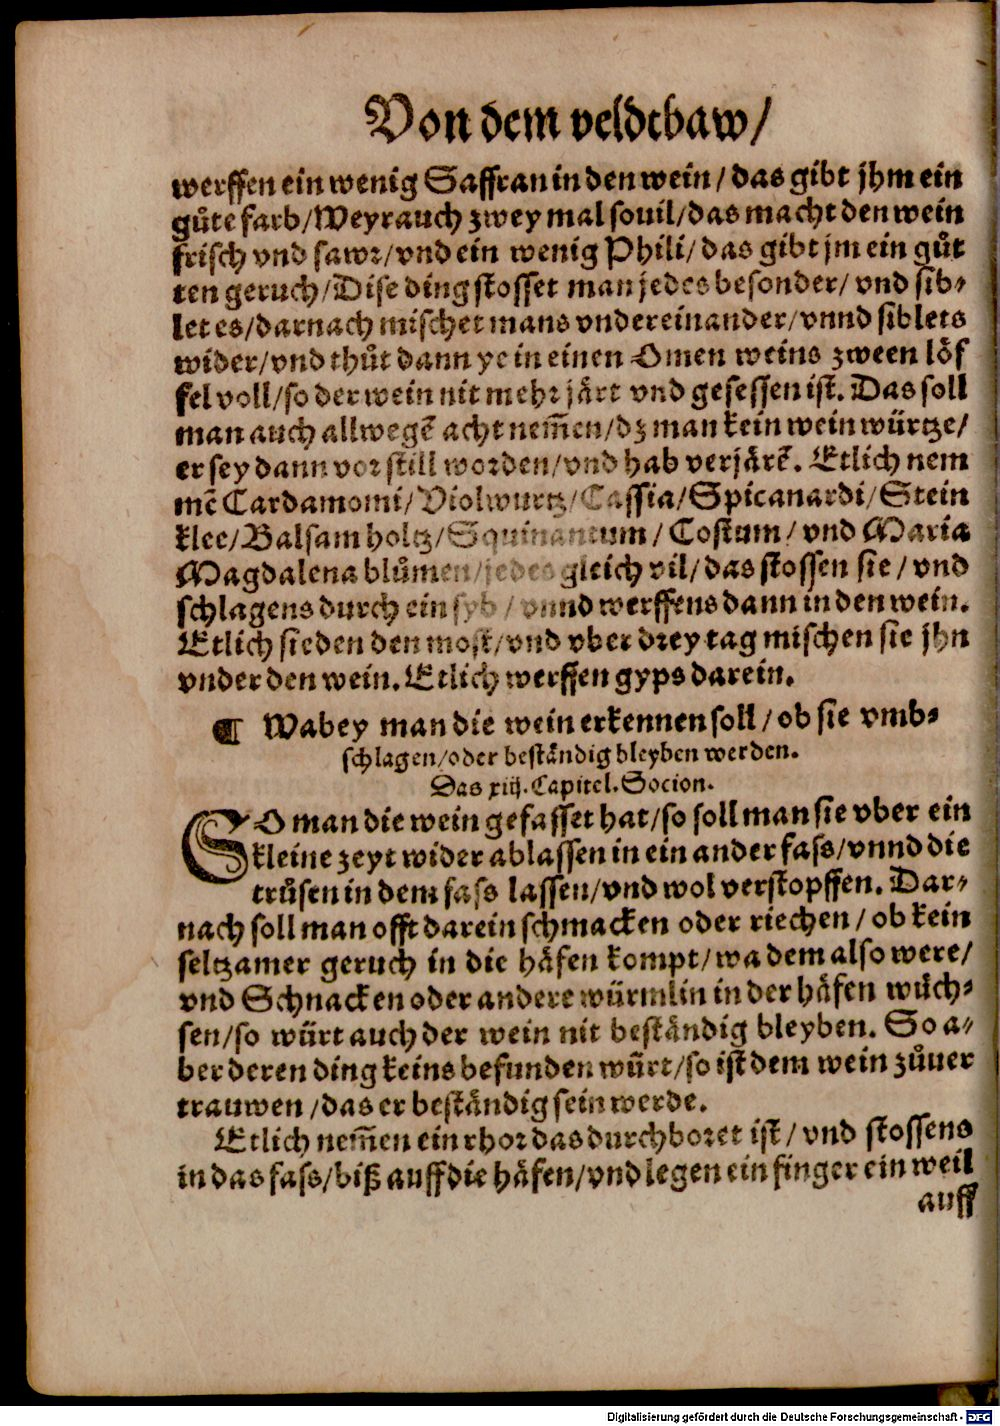 Von dem veldtbaw/
werffen ein wenig Saffran in den wein/das gibt jhm ein
gůte farb/Weyrauch zwey mal souil/das macht den wein
frisch vnd sawr/vnd ein wenig Phili/das gibt jm ein gůt
ten geruch/Dise ding stosset man jedes besonder/vnd sib⸗
let es/darnach mischet mans vndereinander/vnnd siblets
wider/vnd thůt dann ye in einen Omen weins zween löf
fel voll/so der wein nit mehr järt vnd gesessen ist. Das soll
man auch allwegē acht nem̄en/dz man kein wein würtze/
er sey dann vor still worden/vnd hab verjärē. Etlich nem
mē Cardamomi/Violwurtz/Cassia/Spicanardi/Stein
klee/Balsam holtz/Squinantum/Costum/vnd Maria
Magdalena blůmen/jedes gleich vil/das stossen sie/vnd
schlagens durch ein syb/vnnd werffens dann in den wein.
Etlich sieden den most/vnd vber drey tag mischen sie jhn
vnder den wein. Etlich werffen gyps darein.
¶ Wabey man die wein erkennen soll/ob sie vmb⸗
schlagen/oder beständig bleyben werden.
Das xiij. Capitel. Socion.
SO man die wein gefasset hat/so soll man sie vber ein
kleine zeyt wider ablassen in ein ander fass/vnnd die
trůsen in dem fass lassen/vnd wol verstopffen. Dar⸗
nach soll man offt darein schmacken oder riechen/ob kein
seltzamer geruch in die häfen kompt/wa dem also were/
vnd Schnacken oder andere würmlin in der häfen wüch⸗
sen/so würt auch der wein nit beständig bleyben. So a⸗
ber deren ding keins befunden würt/so ist dem wein zůuer
trauwen/das er beständig sein werde.
Etlich nem̄en ein rhor das durchboret ist/vnd stossens
in das fass/biß auff die häfen/vnd legen ein finger ein weil
auff
Digitalisierung gefördert durch die Deutsche Forschungsgemeinschaft - DFG